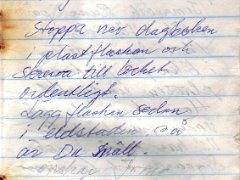 Stoppa ner dagboken
i plastflaskan och
skruva till locket
ordentligt.
Lägg flaskan sedan
i eldstaden så
är Du snäll.